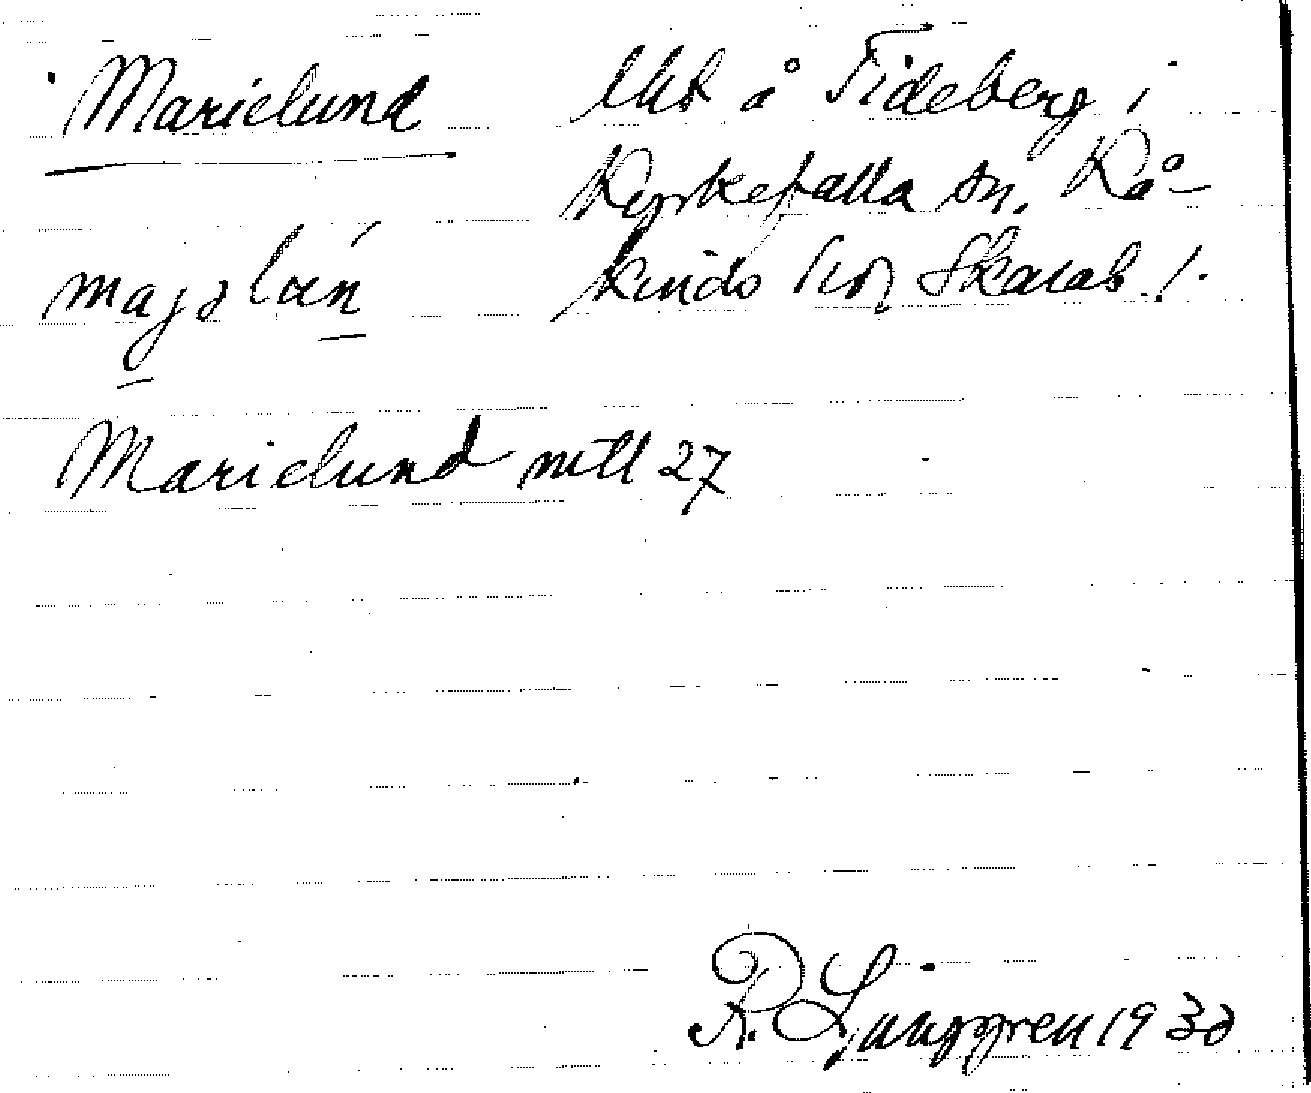 Marielund
Lht å Fideberg i
Kyrkefalla sn, Kå-
kinds hd, Skarab. l.
Marielund mtl 27
R. Ljunggren 1930